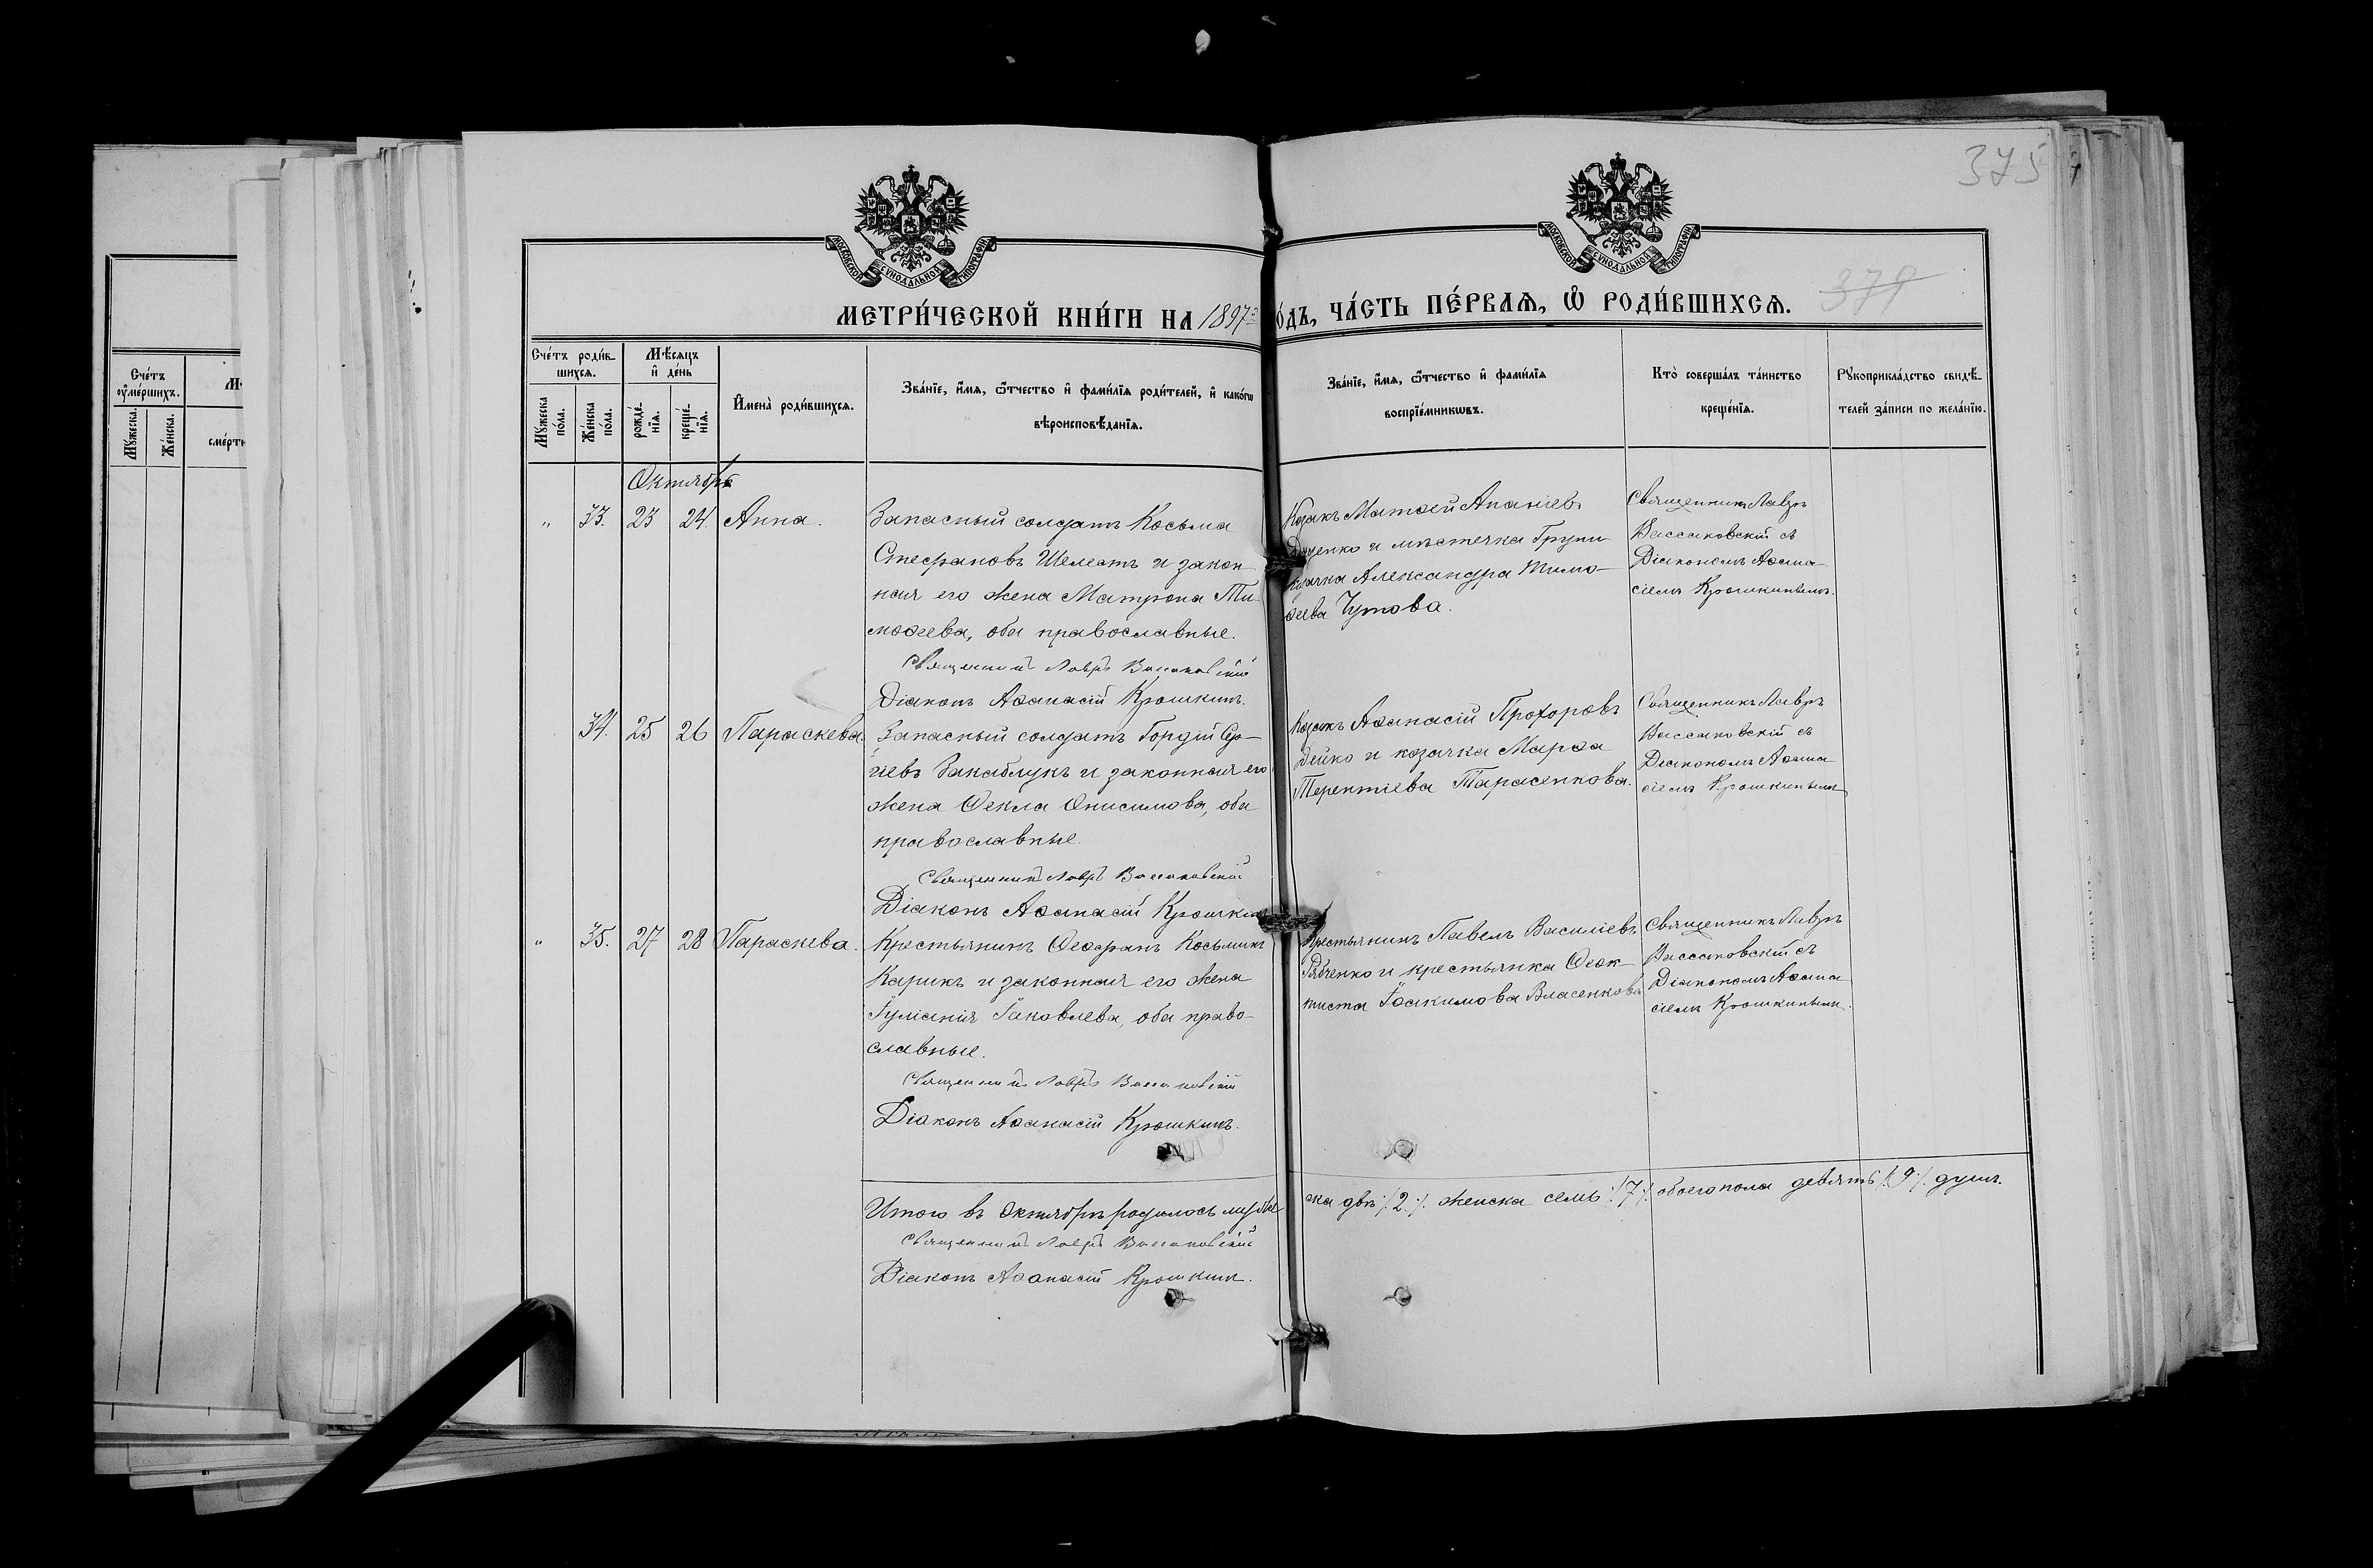 375
379
МОСКОВСКОЙ СѴНОДАЛЬНОЙ ТИПОГРАФІИ
МОСКОВСКОЙ СѴНОДАЛЬНОЙ ТИПОГРАФІИ
МЕТРИ́ЧЕСКОЙ КНИ́ГИ НА 1897 го́дъ, ЧА́СТЬ ПЕ́РВАЯ, Ѿ РОДИ́ВШИХСЯ.
Сче́тъ ᲂу҆ме́ршихъ.
Мꙋ́жеска.
Же́нска.
Сче́тъ роди́в-
шихся.
Мꙋ́жеска по́ла.
Же́нска по́ла.
Мѣ́сяцъ
и҆ де́нь
рожде́-
нїя.
креще́-
нїя.
И҆мена̀ роди́вшихся.
Зва́нїе, и҆́мя, ѻ҆́тчество и҆ фами́лїя роди́телей, и҆ како́гѡ
вѣроисповѣ́данїя.
Зва́нїе, и҆́мя, ѻ҆́тчество и҆ фами́лїя
воспрїе́мникѡвъ.
Кто̀ соверша́лъ та́инство
креще́нїя.
Рꙋкоприкла́дство свидѣ́-
телей за́писи по жела́нїю.
Октябрь
„ 33. 23 24 Анна.
Запасный солдатъ Косьма
Стефановъ Шелестъ и закон-
ная его жена Матрона Ти-
моѳеева, оба православные.
Священникъ Лавръ Вассаковскій
Діаконъ Аѳанасій Крошкинъ.
Козакъ Матѳей Ананіевъ
Доценко и мѣстечка Груни
козачка Александра Тимо-
ѳеева Чутова.
Священникъ Лавръ
Вассаковскій съ
Діакономъ Аѳана-
сіемъ Крошкинымъ.
34. 25 26 Параскева.
Запасный солдатъ Гордій Сер-
гіевъ Закаблукъ и законная его
жена Ѳекла Онисимова, оба
православные.
Священникъ Лавръ Вассаковскій
Діаконъ Аѳанасій Крошкинъ
Козакъ Аѳанасій Прохоровъ
Дейко и козачка Марѳа
Терентіева Тарасенкова.
Священникъ Лавръ
Вассаковскій съ
Діакономъ Аѳана-
сіемъ Крошкинымъ
„ 35. 27 28 Параскева.
Крестьянинъ Ѳеофанъ Косьминъ
Карикъ и законная его жена
Іуліанія Іаковлева, оба право-
славные.
Священникъ Лавръ Вассаковскій
Діаконъ Аѳанасій Крошкинъ.
Крестьянинъ Павелъ Василіевъ
Рябченко и крестьянка Ѳеок-
тиста Іоакимова Власенкова
Священникъ Лавръ
Вассаковскій съ
Діакономъ Аѳана
сіемъ Крошкинымъ.
Итого въ Октябрѣ родилось мужеска двѣ /2/. женска семь /7/. обоего пола девять /9/. душъ.
Священникъ Лавръ Вассаковскій
Діаконъ Аѳанасій Крошкинъ.